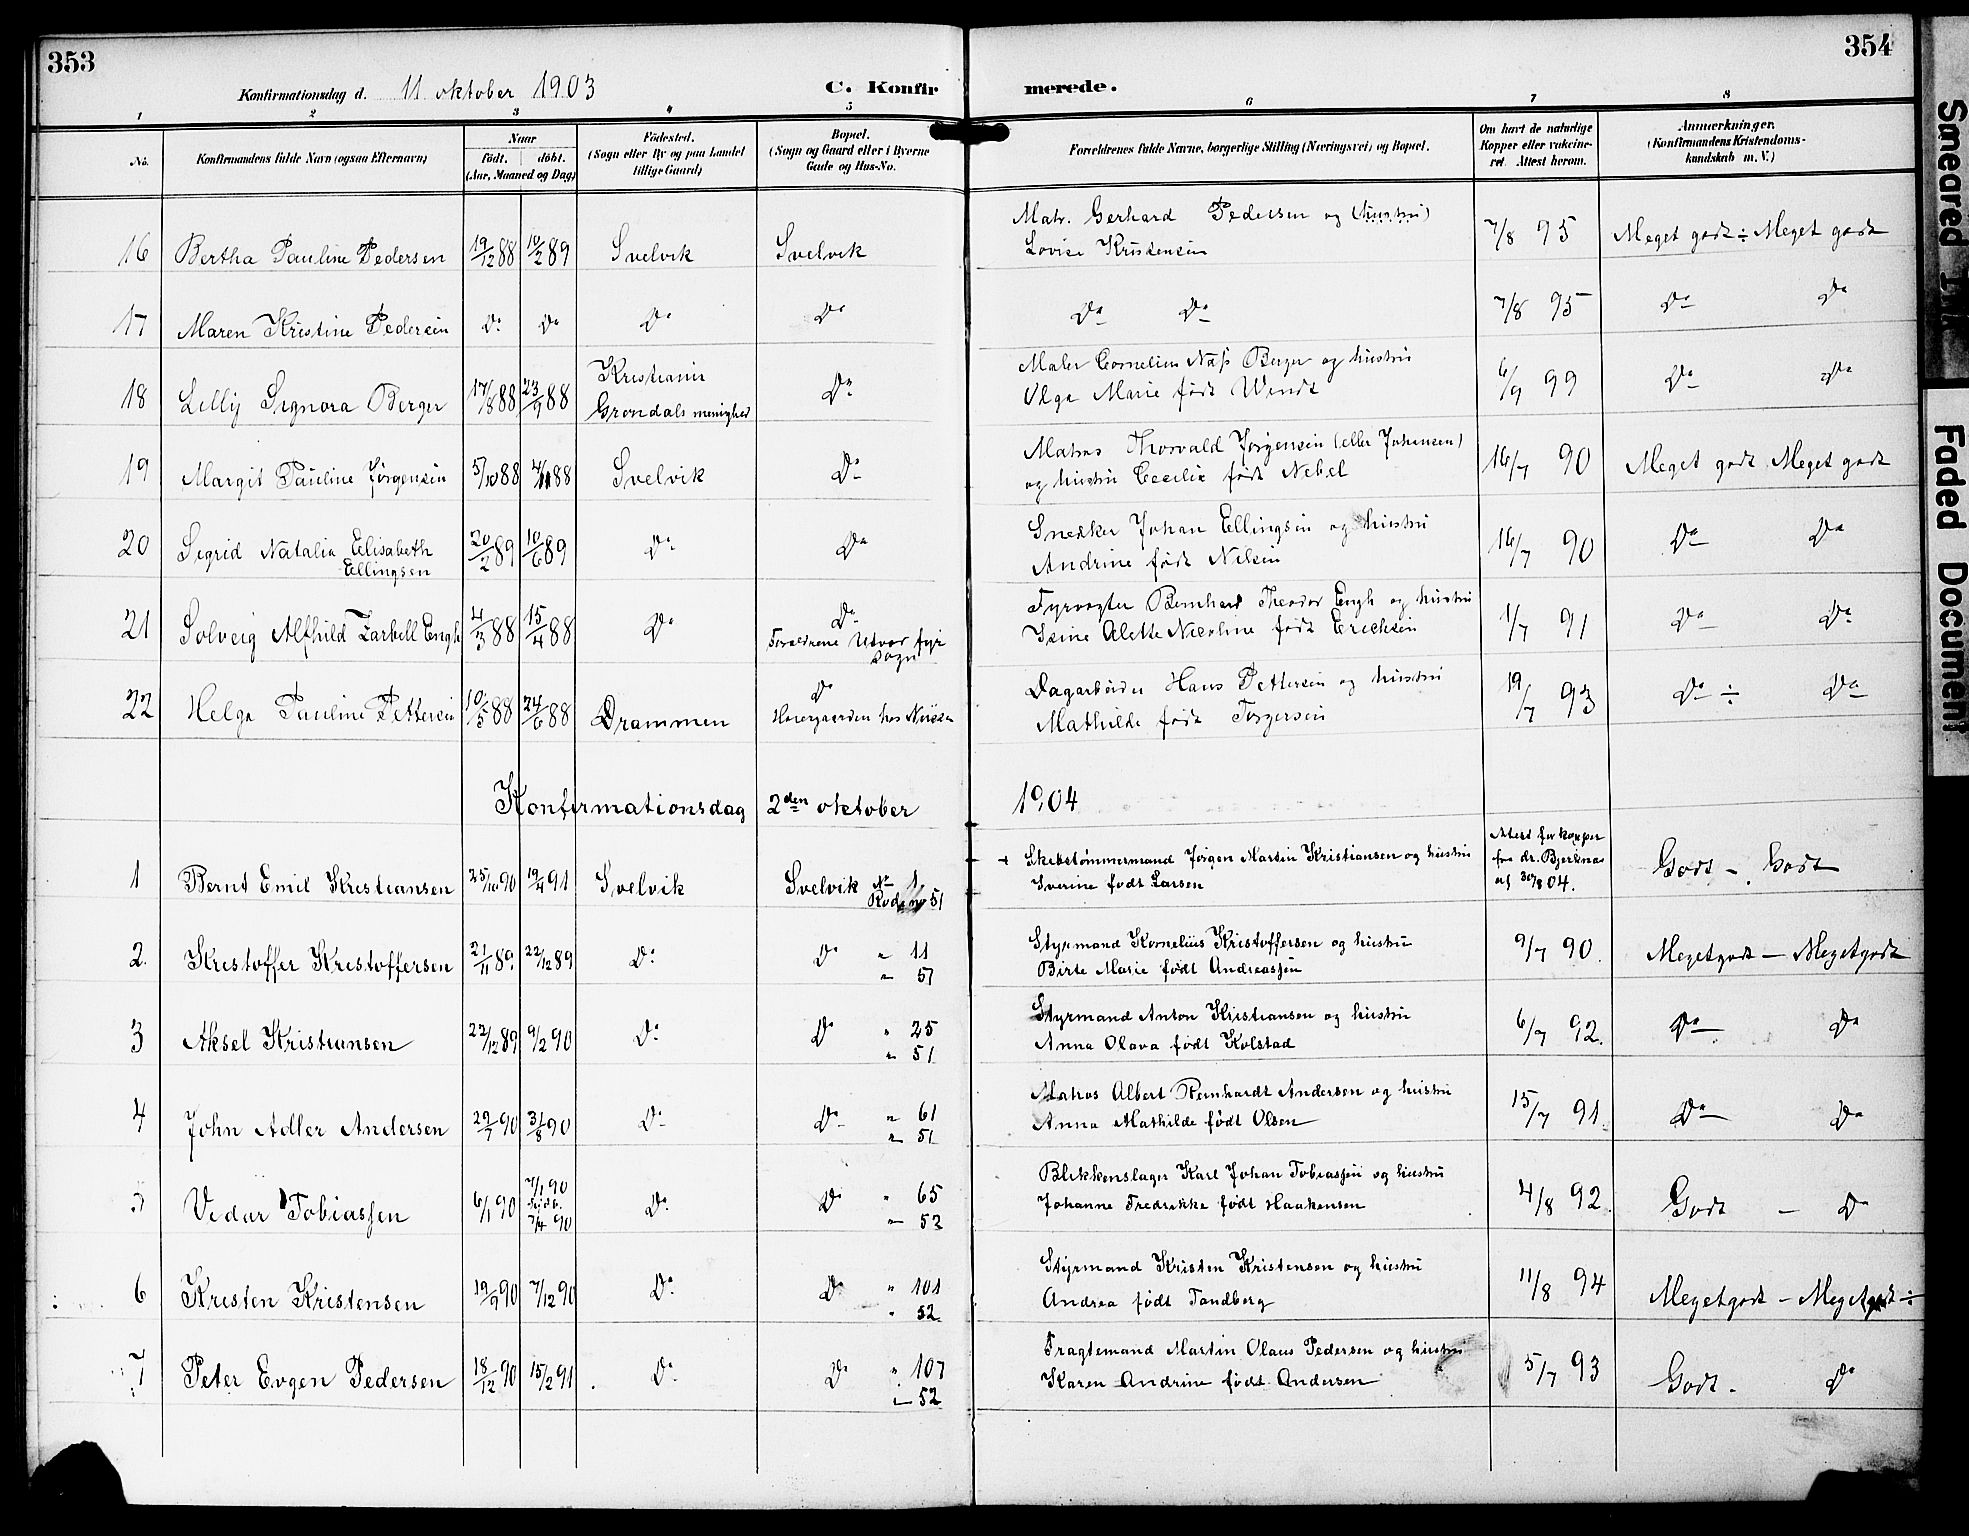 353
354
Konfirmationsdag d. 11 oktober 1903
C. Konfirmerede.
1 2 3 4 5 6 7 8
No. Konfirmandens fulde Navn (ogsaa Efternavn) Naar født. døbt. (Aar, Maaned og Dag) Fødested. (Sogn eller By og paa Landet tillige Gaard) Bopæl. (Sogn og Gaard eller i Byerne Gade og Hus-No. Forældrenes fulde Navne, borgerlige Stilling (Næringsvei) og Bopæl. Om havt de naturlige Kopper eller vakcineret. Attest herom. Anmerkninger. (Konfirmandens Kristendomskundskab m. V.)
16 Bertha Pauline Pedersen 19/12 88 10/2 89 Svelvik Svelvik Matr. Gerhard Pedersen og (hustru) 7/8 95 Meget godt ÷ Meget godt
Lovise Kristensen
17 Maren Kristine Pedersen Do Do Do Do Do Do 7/8 95 Do Do
18 Lilly Signora Berger 17/8 88 23/9 88 Kristiania Do Maler Cornelius Næss Berger og hustru 6/9 99 Do Do
Grøndals menighed Olga Marie født Wendt
19 Margit Pauline Jørgensen 5/10 88 4/11 88 Svelvik Do Matros Thorvald Jørgensen (eller Johansen) 16/7 90 Meget godt Meget godt
og hustru Cecilie født Nebel
20 Sigrid Natalia Elisabeth 20/2 89 10/6 89 Do Do Snedker Johan Ellingsen og hustru 16/7 90 Do Do
Ellingsen Andrine født Nilsen
21 Solveig Alfhild Zarbell Engh 4/3 88 15/4 88 Do Do Fyrvogter Bernhard Theodor Engh og hustru 1/7 91 Do Do
Forældrene Utvær fyr Isine Alette Nicoline født Erichsen
Sogn
22 Helga Pauline Pettersen 10/5 88 24/6 88 Drammen Do Dagarbeider Hans Pettersen og hustru 19/7 93 Do ÷ Do
hos Mathilde født Torgersen
Konfirmationsdag 2den oktober 1904
1 Bernt Emil Kristiansen 25/10 90 19/4 91 Svelvik Svelvik No 1 + Skibstømmermand Jørgen Martin Kristiansen og hustru Attest for kopper Godt – Godt
Rode no 51 Iverine født Larsen fra dr. Bjerknæs
af 30/8 04.
2. Kristoffer Kristoffersen 21/11 89. 22/12 89 Do Do " 11 Styrmand Kornelius Kristoffersen og hustru 9/7 90. Megetgodt – Megetgodt
" 51 Birte Marie født Andreassen
3 Aksel Kristiansen 22/12 89 9/2 90 Do Do " 25 Styrmand Anton Kristiansen og hustru 6/7 92. Do Do
" 51 Anna Olava født Kolstad
4 John Adler Andersen 22/7 90 31/8 90 Do Do " 61 Matros Albert Reinhardt Andersen og hustru 15/7 91 Do Do
" 51 Anna Mathilde født Olsen
5 Vidar Tobiassen 6/1 90 7/1 90 Do Do " 65 Blikkenslager Karl Johan Tobiassen og hustru 4/8 92 Godt – Do
7/4 90 " 52 Johanne Fredrikke født Haakensen
6 Kristen Kristensen 19/9 90 7/12 90 Do Do " 101 Styrmand Kristen Kristensen og hustru 11/8 94 Megetgodt – Megetgodt ÷
" 52 Andrea født Tandberg
7 Peter Evgen Pedersen 18/12 90 15/2 91 Do Do " 107 Fragtemand Martin Olaus Pedersen og hustru 5/7 93 Godt. Do
" 52 Karen Andrine født Andersen
Smeared
Faded Document